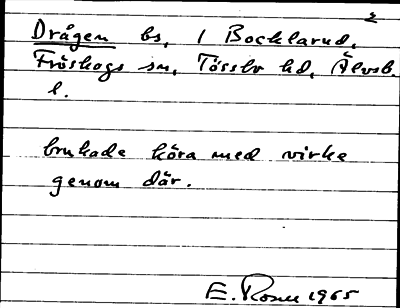 2
Drågen bs, 1 Bocklarud,
Fröskogs sn, Tössbo hd, Älvsb.
l.
brukade köra med virke
genom där.
E. Rosen 1965